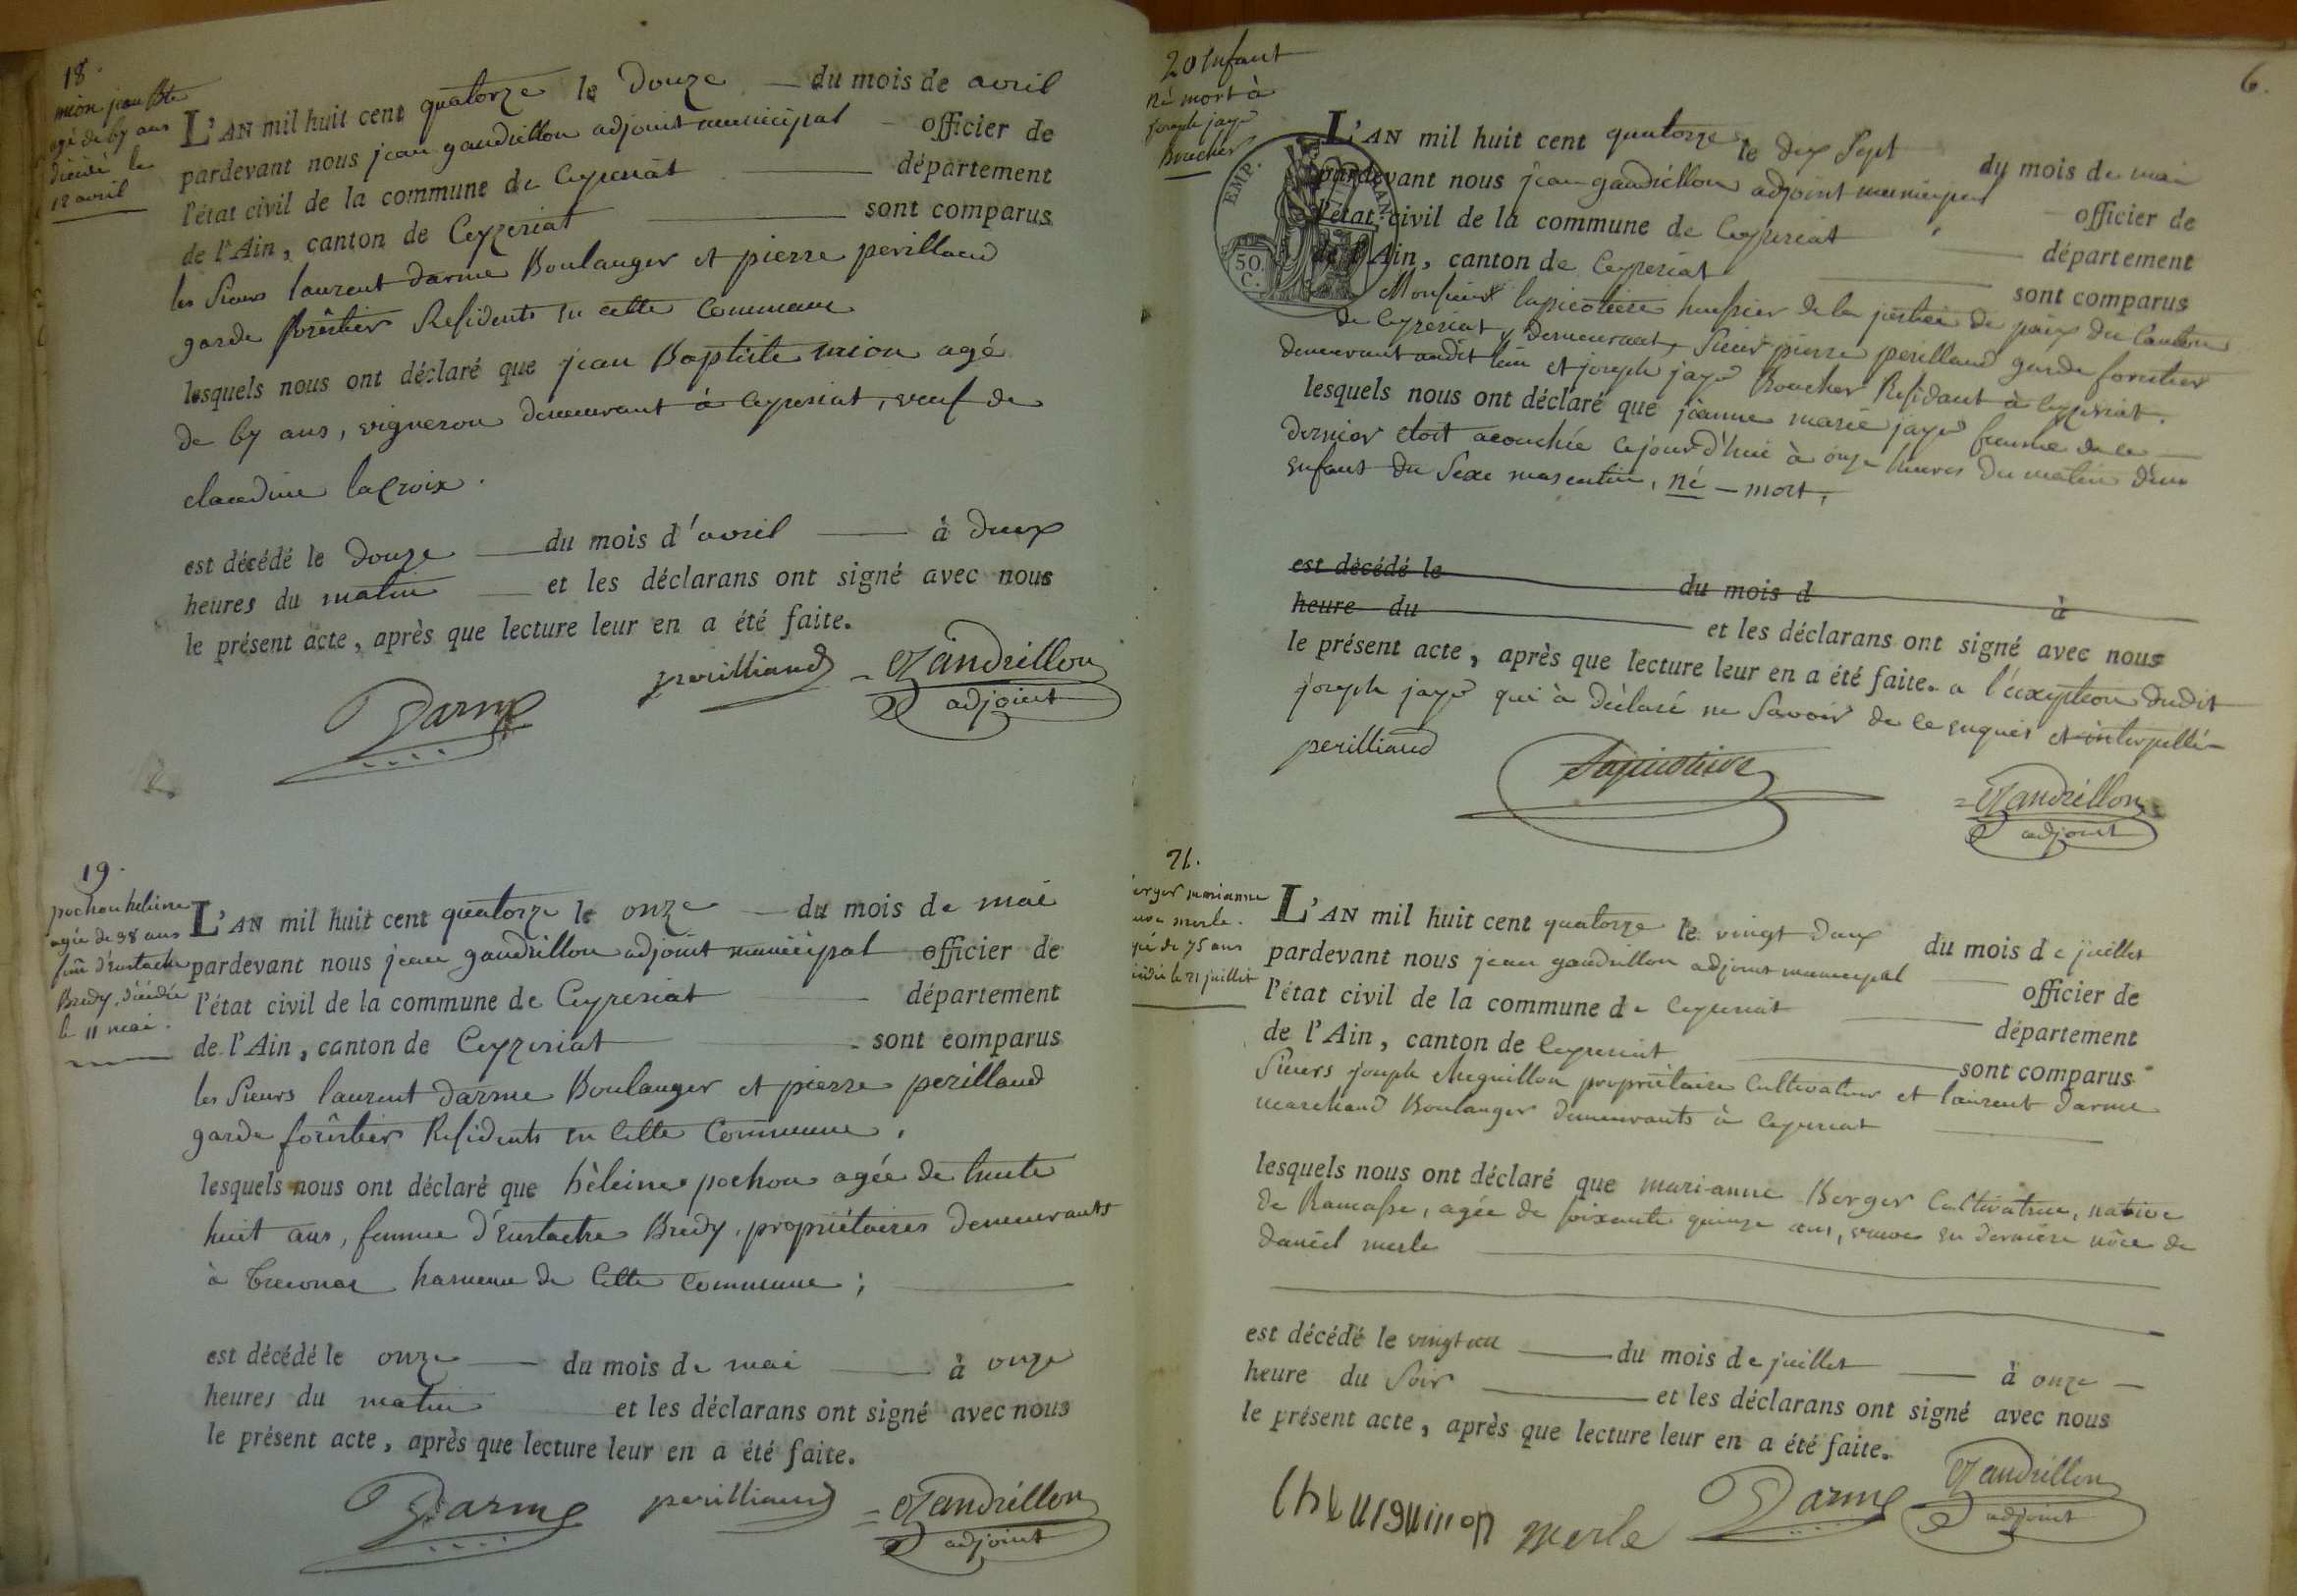 18.
mion jean Bte
agé de 67 ans
décédé le
12 avril
L'AN mil huit cent quatorze le douze du mois de avril
pardevant nous jean gandrillon adjoint municipal officier de
l'état civil de la commune de Ceyzeriat département
de l'Ain, canton de Ceyzeriat sont comparus
les Sieurs laurent darme Boulanger et pierre perilland
garde forêstier Residents en cette Commune
lesquels nous ont déclaré que jean Baptiste mion agé
de 67 ans, vigneron demeurant à Ceyzeriat, veuf de
claudine lacroix.
est décédé le douze du mois d'avril à deux
heures du matin et les déclarans ont signé avec nous
le présent acte, après que lecture leur en a été faite.
perilliand Gandrillon
Darme adjoint
19.
pochon héleine
agée de 38 ans
fme d'Eustache
Bredy, décédée
le 11 mai.
L'AN mil huit cent quatorze le onze du mois de mai
pardevant nous jean gandrillon adjoint municipal officier de
l'état civil de la commune de Ceyzeriat département
de l'Ain, canton de Ceyzeriat sont comparus
les Sieurs laurent darme Boulanger et pierre perilland
garde forêstier Residents en cette Commune,
lesquels nous ont déclaré que hèleine pochon agée de trente
huit ans, femme d'Eustache Bredy, propriétaires demeurants
à hameau de cette commune;
est décédé le onze du mois de mai à onze
heures du matin et les déclarans ont signé avec nous
le présent acte, après que lecture leur en a été faite.
Darme perilliand Gandrillon
adjoint
6.
20 Enfant
né mort à
joseph jayr
Boucher
EMP.
50
C.
L'AN mil huit cent quatorze le dix Sept du mois de mai
pardevant nous jean gandrillon adjoint municipal officier de
l'état civil de la commune de Ceyzeriat département
de l'Ain, canton de Ceyzeriat sont comparus
Monsieur lapicotiere huissier de la justice de paix du Canton
de Ceyzeriat y demeurant, Sieur pierre perilland garde forestier
demeurant audit lieu et joseph jayr Boucher Residant à Ceyzeriat.
lesquels nous ont déclaré que jeanne marie jayr femme de ce
dernier etoit acouchée cejourd'hui à onze heures du matin d'un
enfant du Sexe masculin, né - mort,
est décédé le du mois d à
heure du et les déclarans ont signé avec nous
le présent acte, après que lecture leur en a été faite. a l'exception dudit
joseph jayr qui à déclaré ne Savoir de ce enquis et interpellé
perilliand Lapicotiere Gandrillon
adjoint
21.
berger marianne
veuve merle.
agé de 75 ans
décédée le 21 juillet
L'AN mil huit cent quatorze le vingt deux du mois de juillet
pardevant nous jean gandrillon adjoint municipal officier de
l'état civil de la commune de Ceyzeriat département
de l'Ain, canton de Ceyzeriat sont comparus
Sieurs joseph propriétaire Cultivateur et laurent darme
marchand Boulanger demeurants à Ceyzeriat
lesquels nous ont déclaré que mari-anne Berger Cultivatrice, native
de Ramasse, agée de soixante quinze ans, veuve en dernière nôce de
daniel merle
est décédé le vingt un du mois de juillet à onze
heure du Soir et les déclarans ont signé avec nous
le présent acte, après que lecture leur en a été faite.
merle Darme Gandrillon
adjoint